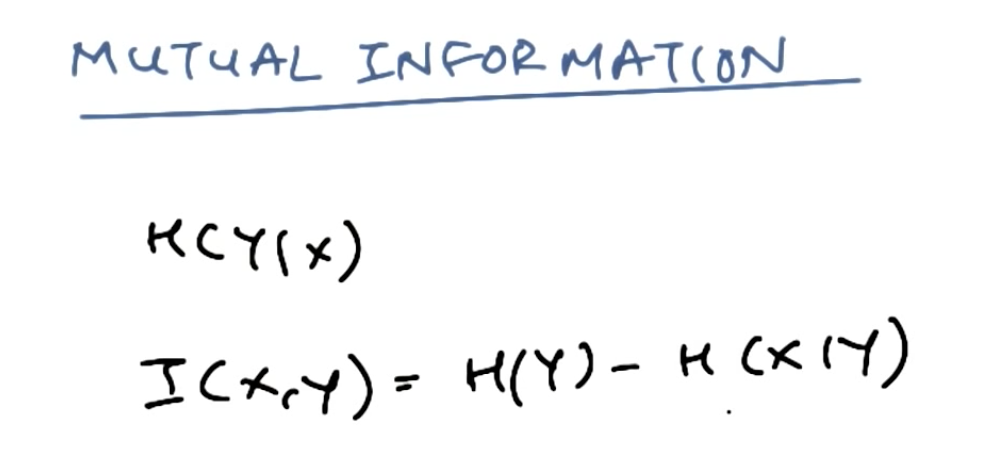 MUTUAL INFORMATION
H(Y|X)
I(X,Y) = H(Y) - H(X|Y)